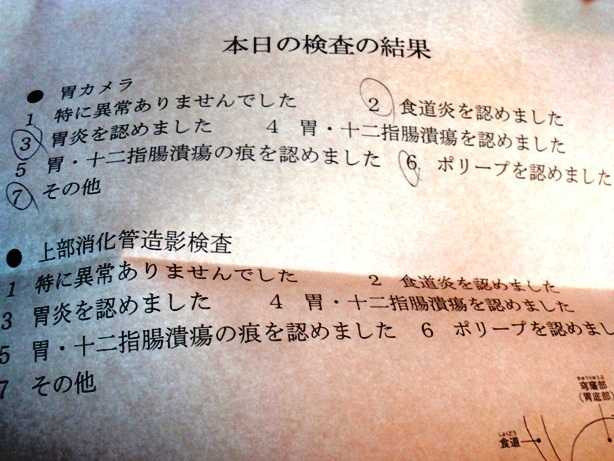 本日の検査の結果
● 胃カメラ
1 特に異常ありませんでした 2 食道炎を認めました
3 胃炎を認めました 4 胃・十二指腸潰瘍を認めました
5 胃・十二指腸潰瘍の痕を認めました 6 ポリープを認めました
7 その他
● 上部消化管造影検査
1 特に異常ありませんでした 2 食道炎を認めました
3 胃炎を認めました 4 胃・十二指腸潰瘍を認めました
5 胃・十二指腸潰瘍の痕を認めました 6 ポリープを認めまし
7 その他
穹窿部
(胃底部)
しょくどう
食道